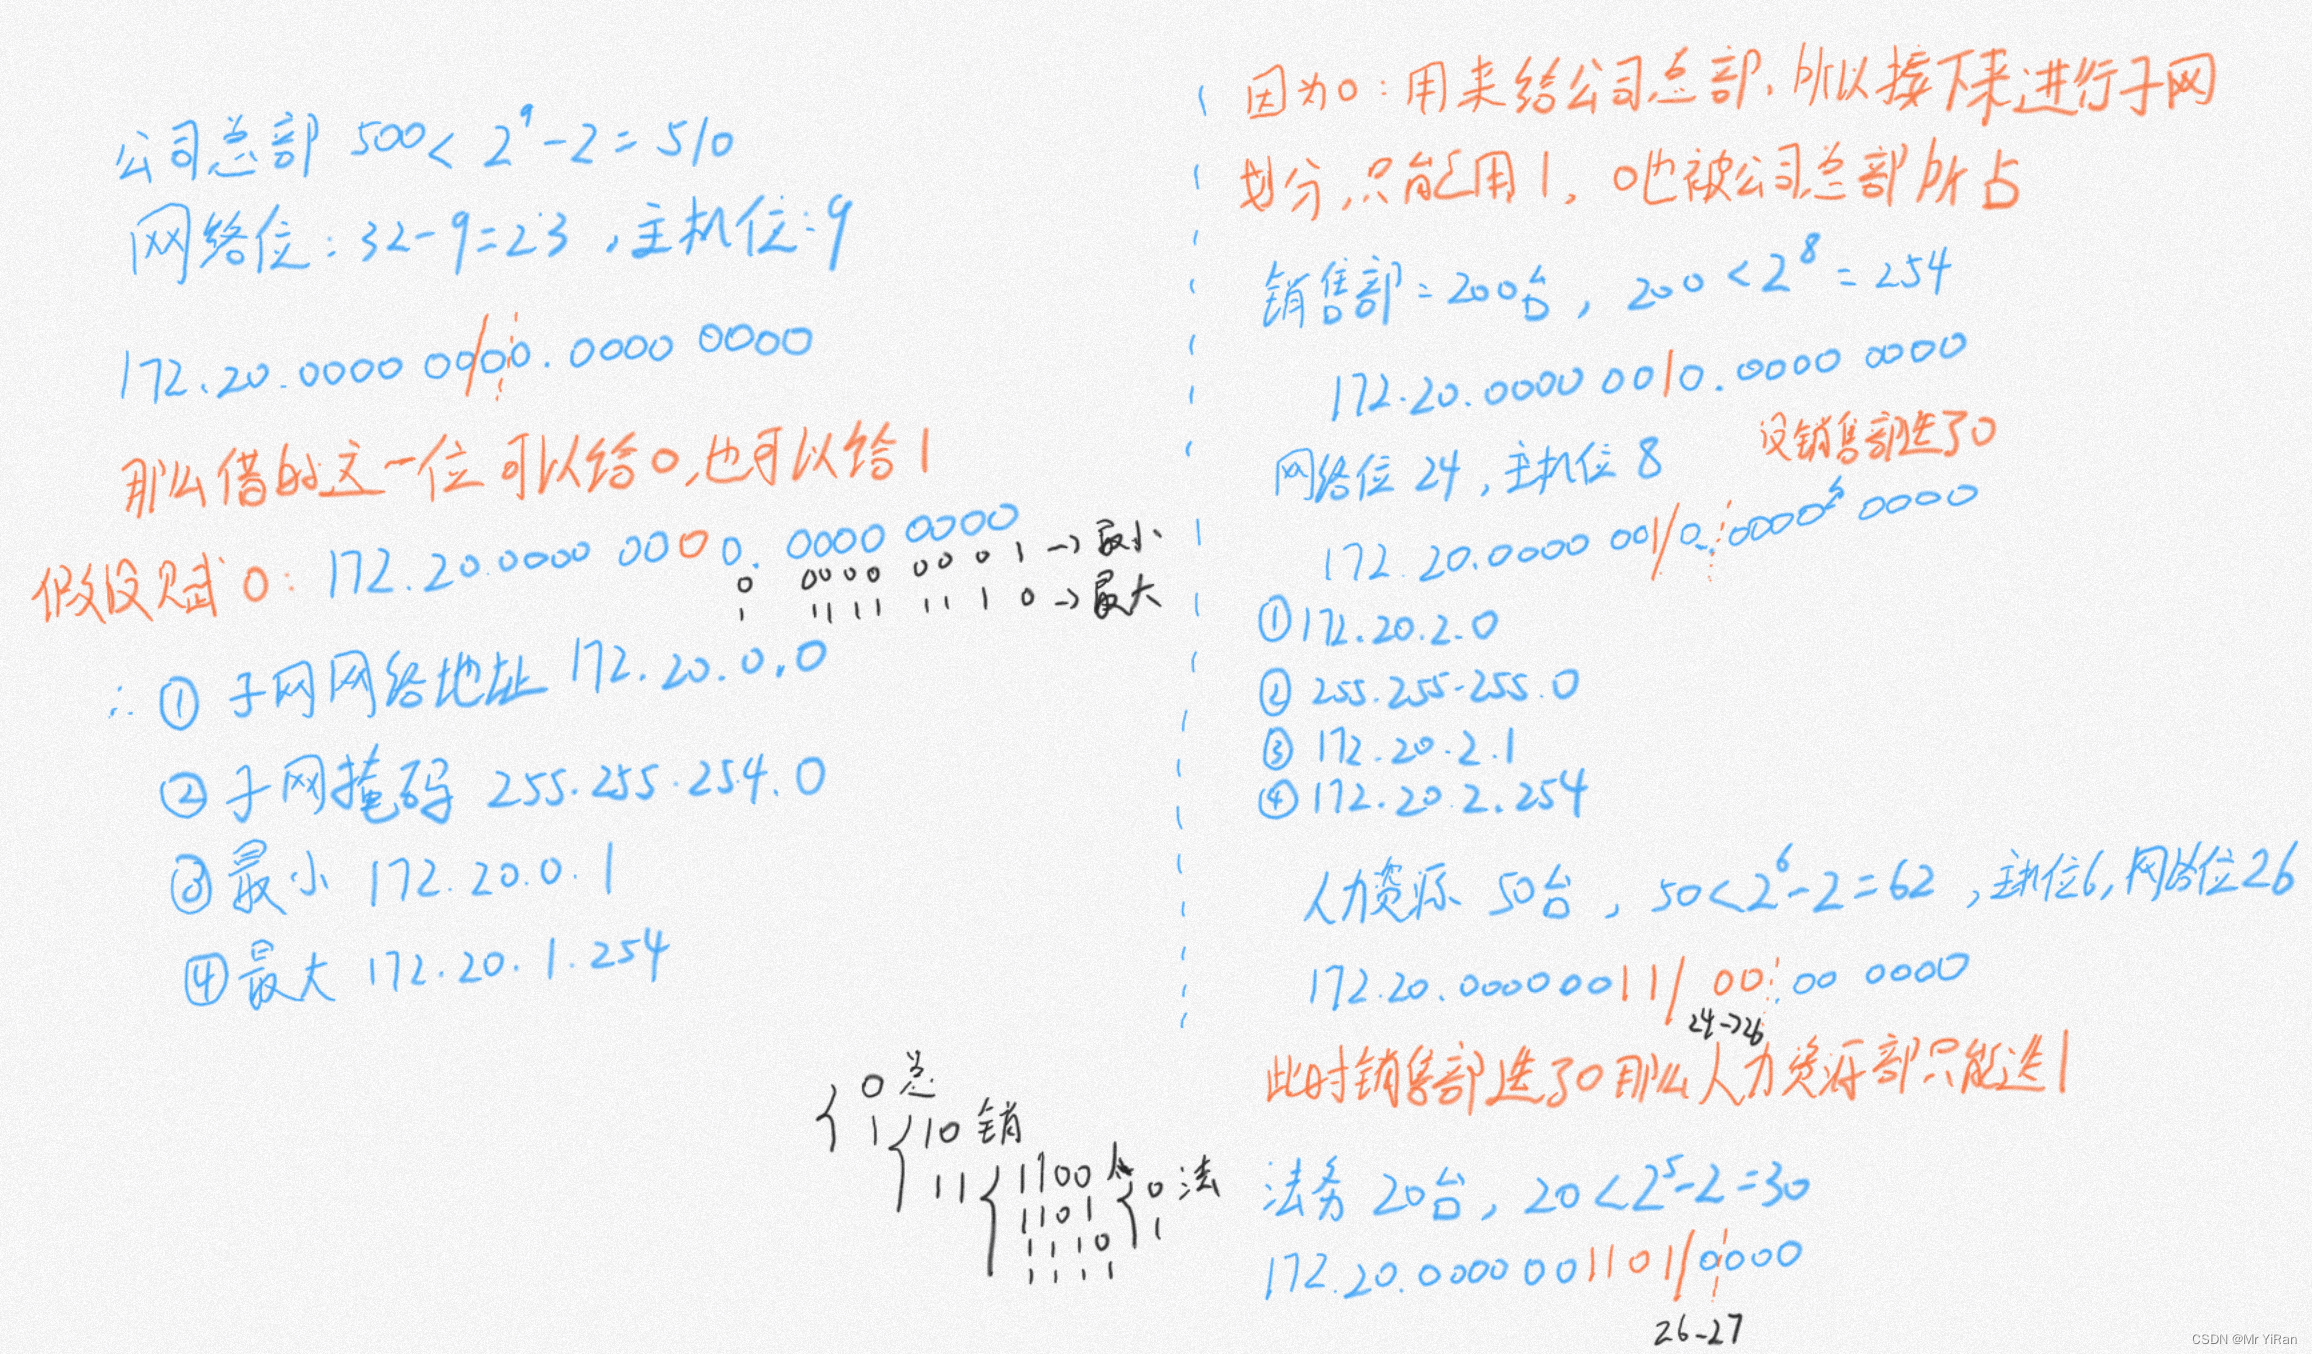 公司总部 500< 2⁹-2=510
网络位：32-9=23，主机位：9
172.20.0000 00/00.0000 0000
那么借的这一位可以给0，也可以给1
假设赋0：172.20.0000 0000.0000 0000
0 0000 0001→最小
1 1111 1110→最大
∴ ① 子网网络地址 172.20.0.0
② 子网掩码 255.255.254.0
③ 最小 172.20.0.1
④ 最大 172.20.1.254
{ 0 总
1 { 10 销
11 { 1100 人
1101 { 0 法
1
1110
1111
因为0：用来给公司总部，所以接下来进行子网
划分，只能用1，0也被公司总部所占
销售部=200台，200<2⁸=254
172.20.0000 0010.0000 0000
网络位24，主机位8
设销售部选了0
172.20.0000 001/0.0000 0000
① 172.20.2.0
② 255.255.255.0
③ 172.20.2.1
④ 172.20.2.254
人力资源 50台，50<2⁶-2=62，主机位6，网络位26
172.20.00000011/00 00 0000
24→26
此时销售部选了0那么人力资源部只能选1
法务 20台，20<2⁵-2=30
172.20.0000 001101/0000
26-27
CSDN @Mr YiRan